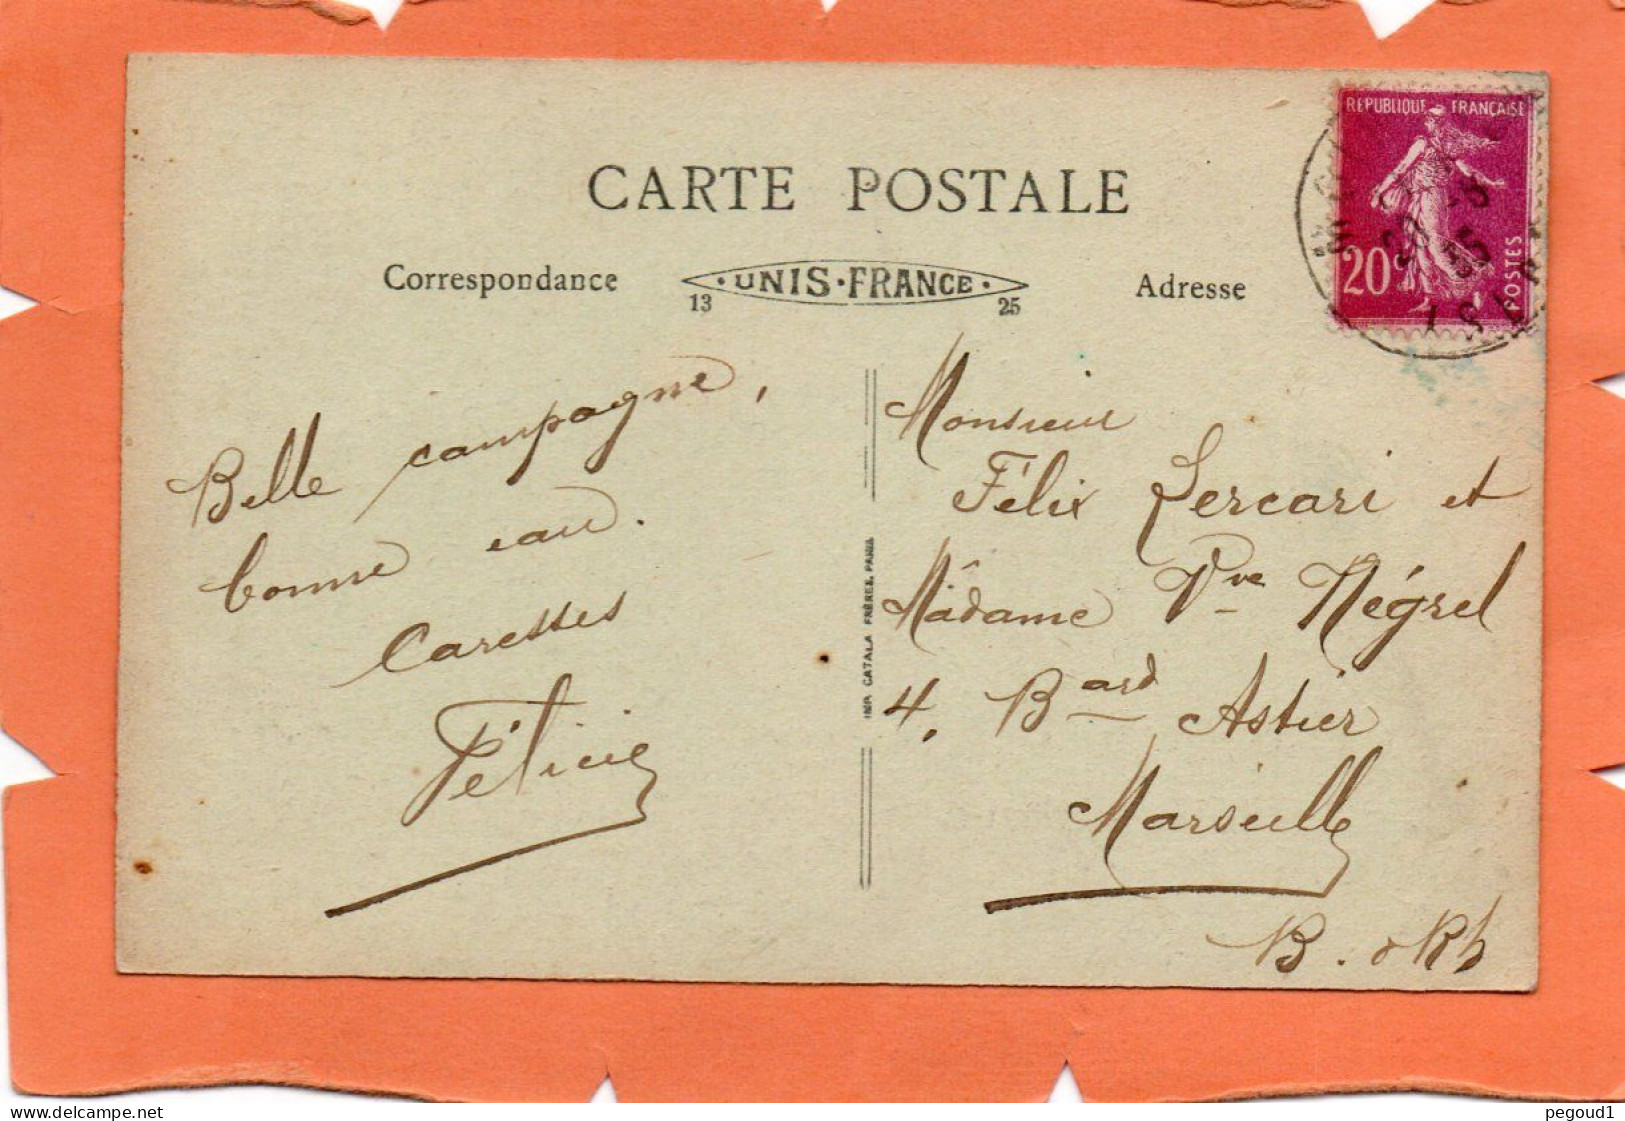 CARTE POSTALE
Correspondance
UNIS · FRANCE
13 25
Adresse
RÉPUBLIQUE FRANÇAISE
20c
POSTES
Belle campagne,
bonne eau.
Caresses
Félicie
IMP. CATALA FRÈRES, PARIS
Monsieur
Félix Lercari et
Madame Vve Négrel
4, Bard Astier
Marseille
B. d Rh
delcampe.net
pegoud1